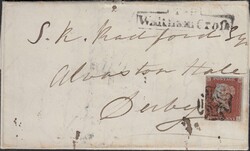 Waltham Cross
S. R. Radford Esq
Alvaston Hall
Derby